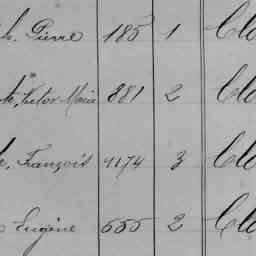 h. Pierre 185 1 Clo
te, Victor Marie 881 2 Clo
e, François 1174 3 Clo
Eugène 655 2 Clo